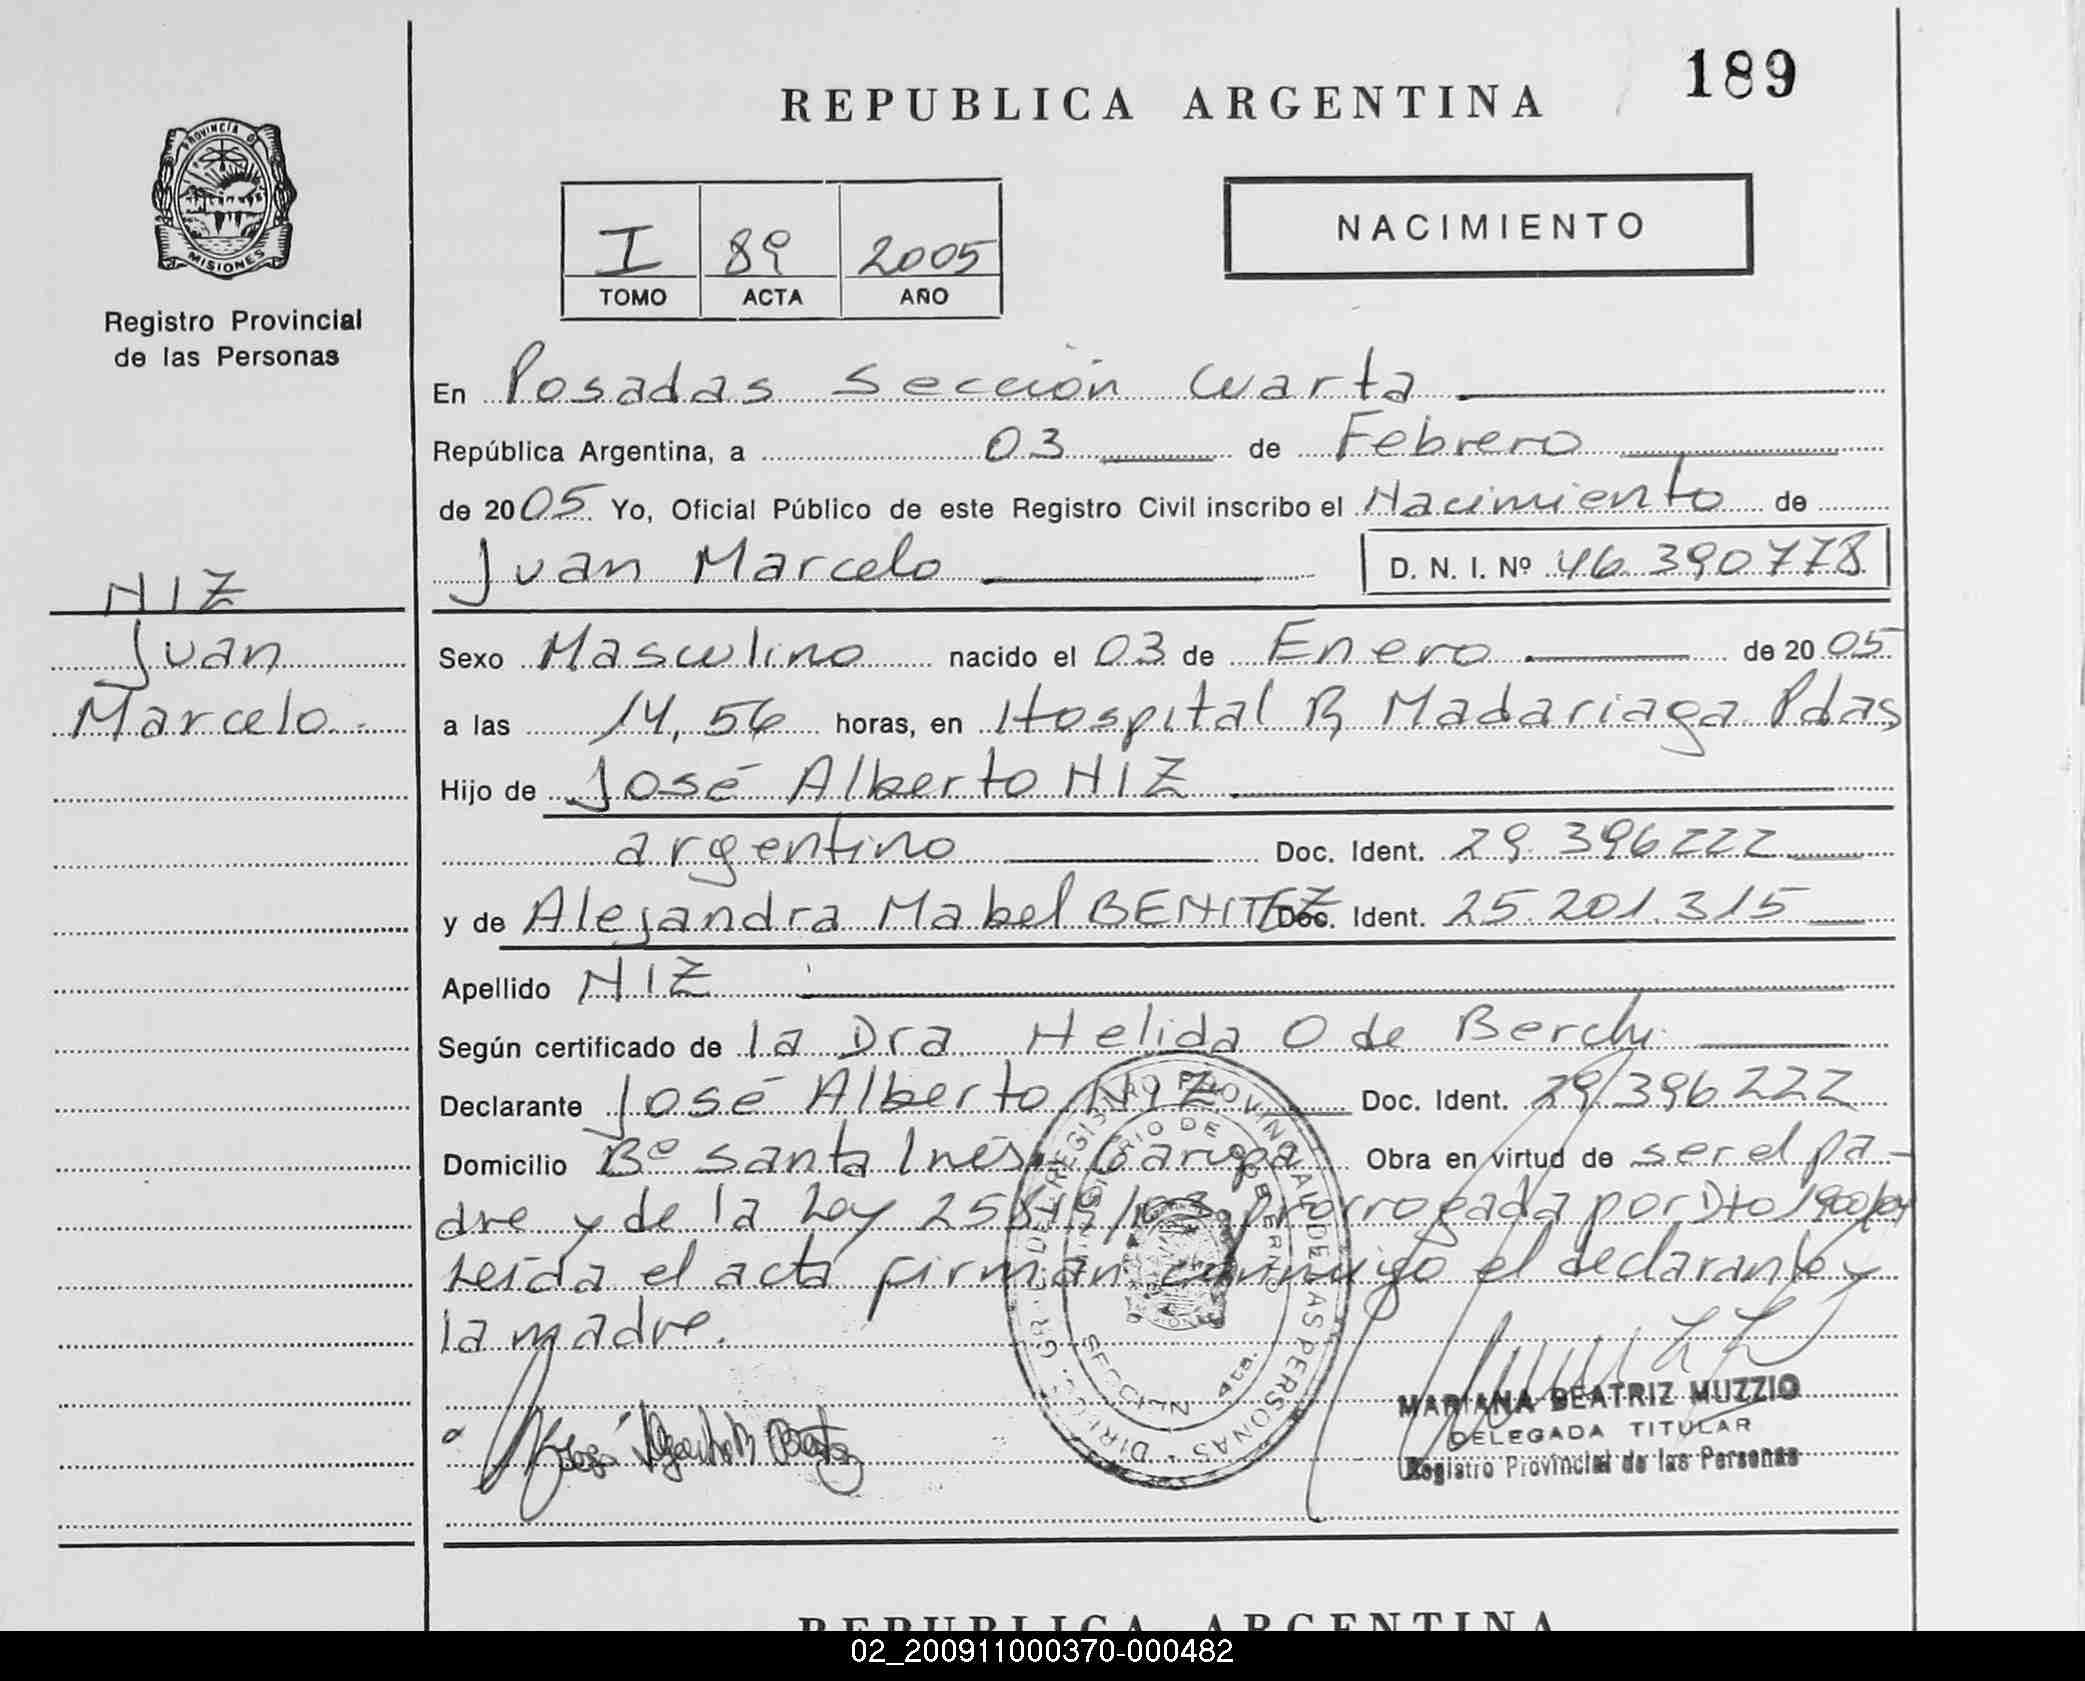 189
REPUBLICA ARGENTINA
PROVINCIA DE
MISIONES
Registro Provincial
de las Personas
I 89 2005
TOMO ACTA AÑO
NACIMIENTO
En Posadas Sección Cuarta
República Argentina, a 03 de Febrero
de 2005 Yo, Oficial Público de este Registro Civil inscribo el Nacimiento de
Juan Marcelo D. N. I. Nº 46.390778
NIZ
Juan
Marcelo.-
Sexo Masculino nacido el 03 de Enero de 2005
a las 14,56 horas, en Hospital R Madariaga Pdas
Hijo de José Alberto NIZ
argentino Doc. Ident. 29.396222
y de Alejandra Mabel BENITEZ Doc. Ident. 25.201.315
Apellido NIZ
Según certificado de la Dra Helida O de Berchi
Declarante José Alberto NIZ Doc. Ident. 29.396222
Domicilio Bº Santa Inés. Garupá Obra en virtud de ser el pa-
dre y de la Ley 25819/03 prorrogada por Dto 1900/04
Leída el acta firman conmigo el declarante y
la madre.
DIREC. GR. DEL REGISTRO PROVINCIAL DE LAS PERSONAS
MINISTERIO DE GOBIERNO
SECCION 4ta.
MARIANA BEATRIZ MUZZIO
DELEGADA TITULAR
Registro Provincial de las Personas
REPUBLICA ARGENTINA
02_200911000370-000482